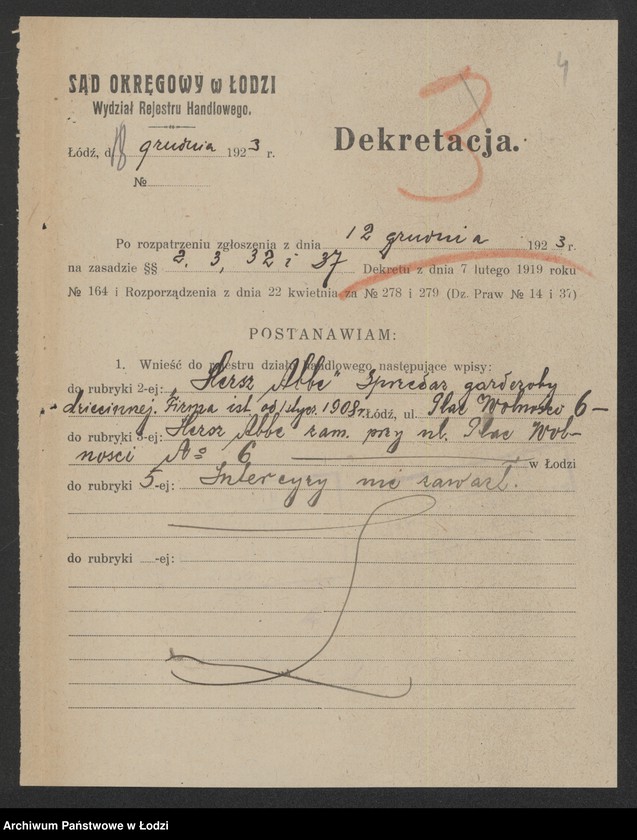 4
SĄD OKRĘGOWY w ŁODZI
Wydział Rejestru Handlowego.
3
Dekretacja.
Łódź, d. 18 grudnia 1923 r.
№
Po rozpatrzeniu zgłoszenia z dnia 12 grudnia 1923 r.
na zasadzie §§ 2, 3, 32 i 37 Dekretu z dnia 7 lutego 1919 roku
№ 164 i Rozporządzenia z dnia 22 kwietnia za № 278 i 279 (Dz. Praw № 14 i 37)
POSTANAWIAM:
1. Wnieść do rejestru działu handlowego następujące wpisy:
do rubryki 2-ej: „Hersz Abbe" Sprzedaż garderoby
dziecinnej. Firma ist. od 1 stycz. 1908 r. Łódź, ul. Plac Wolności 6 –
do rubryki 3-ej: Hersz Abbe zam. przy ul. Plac Wol-
ności № 6 w Łodzi
do rubryki 5-ej: Intercyzy nie zawarł.
do rubryki -ej:
Archiwum Państwowe w Łodzi